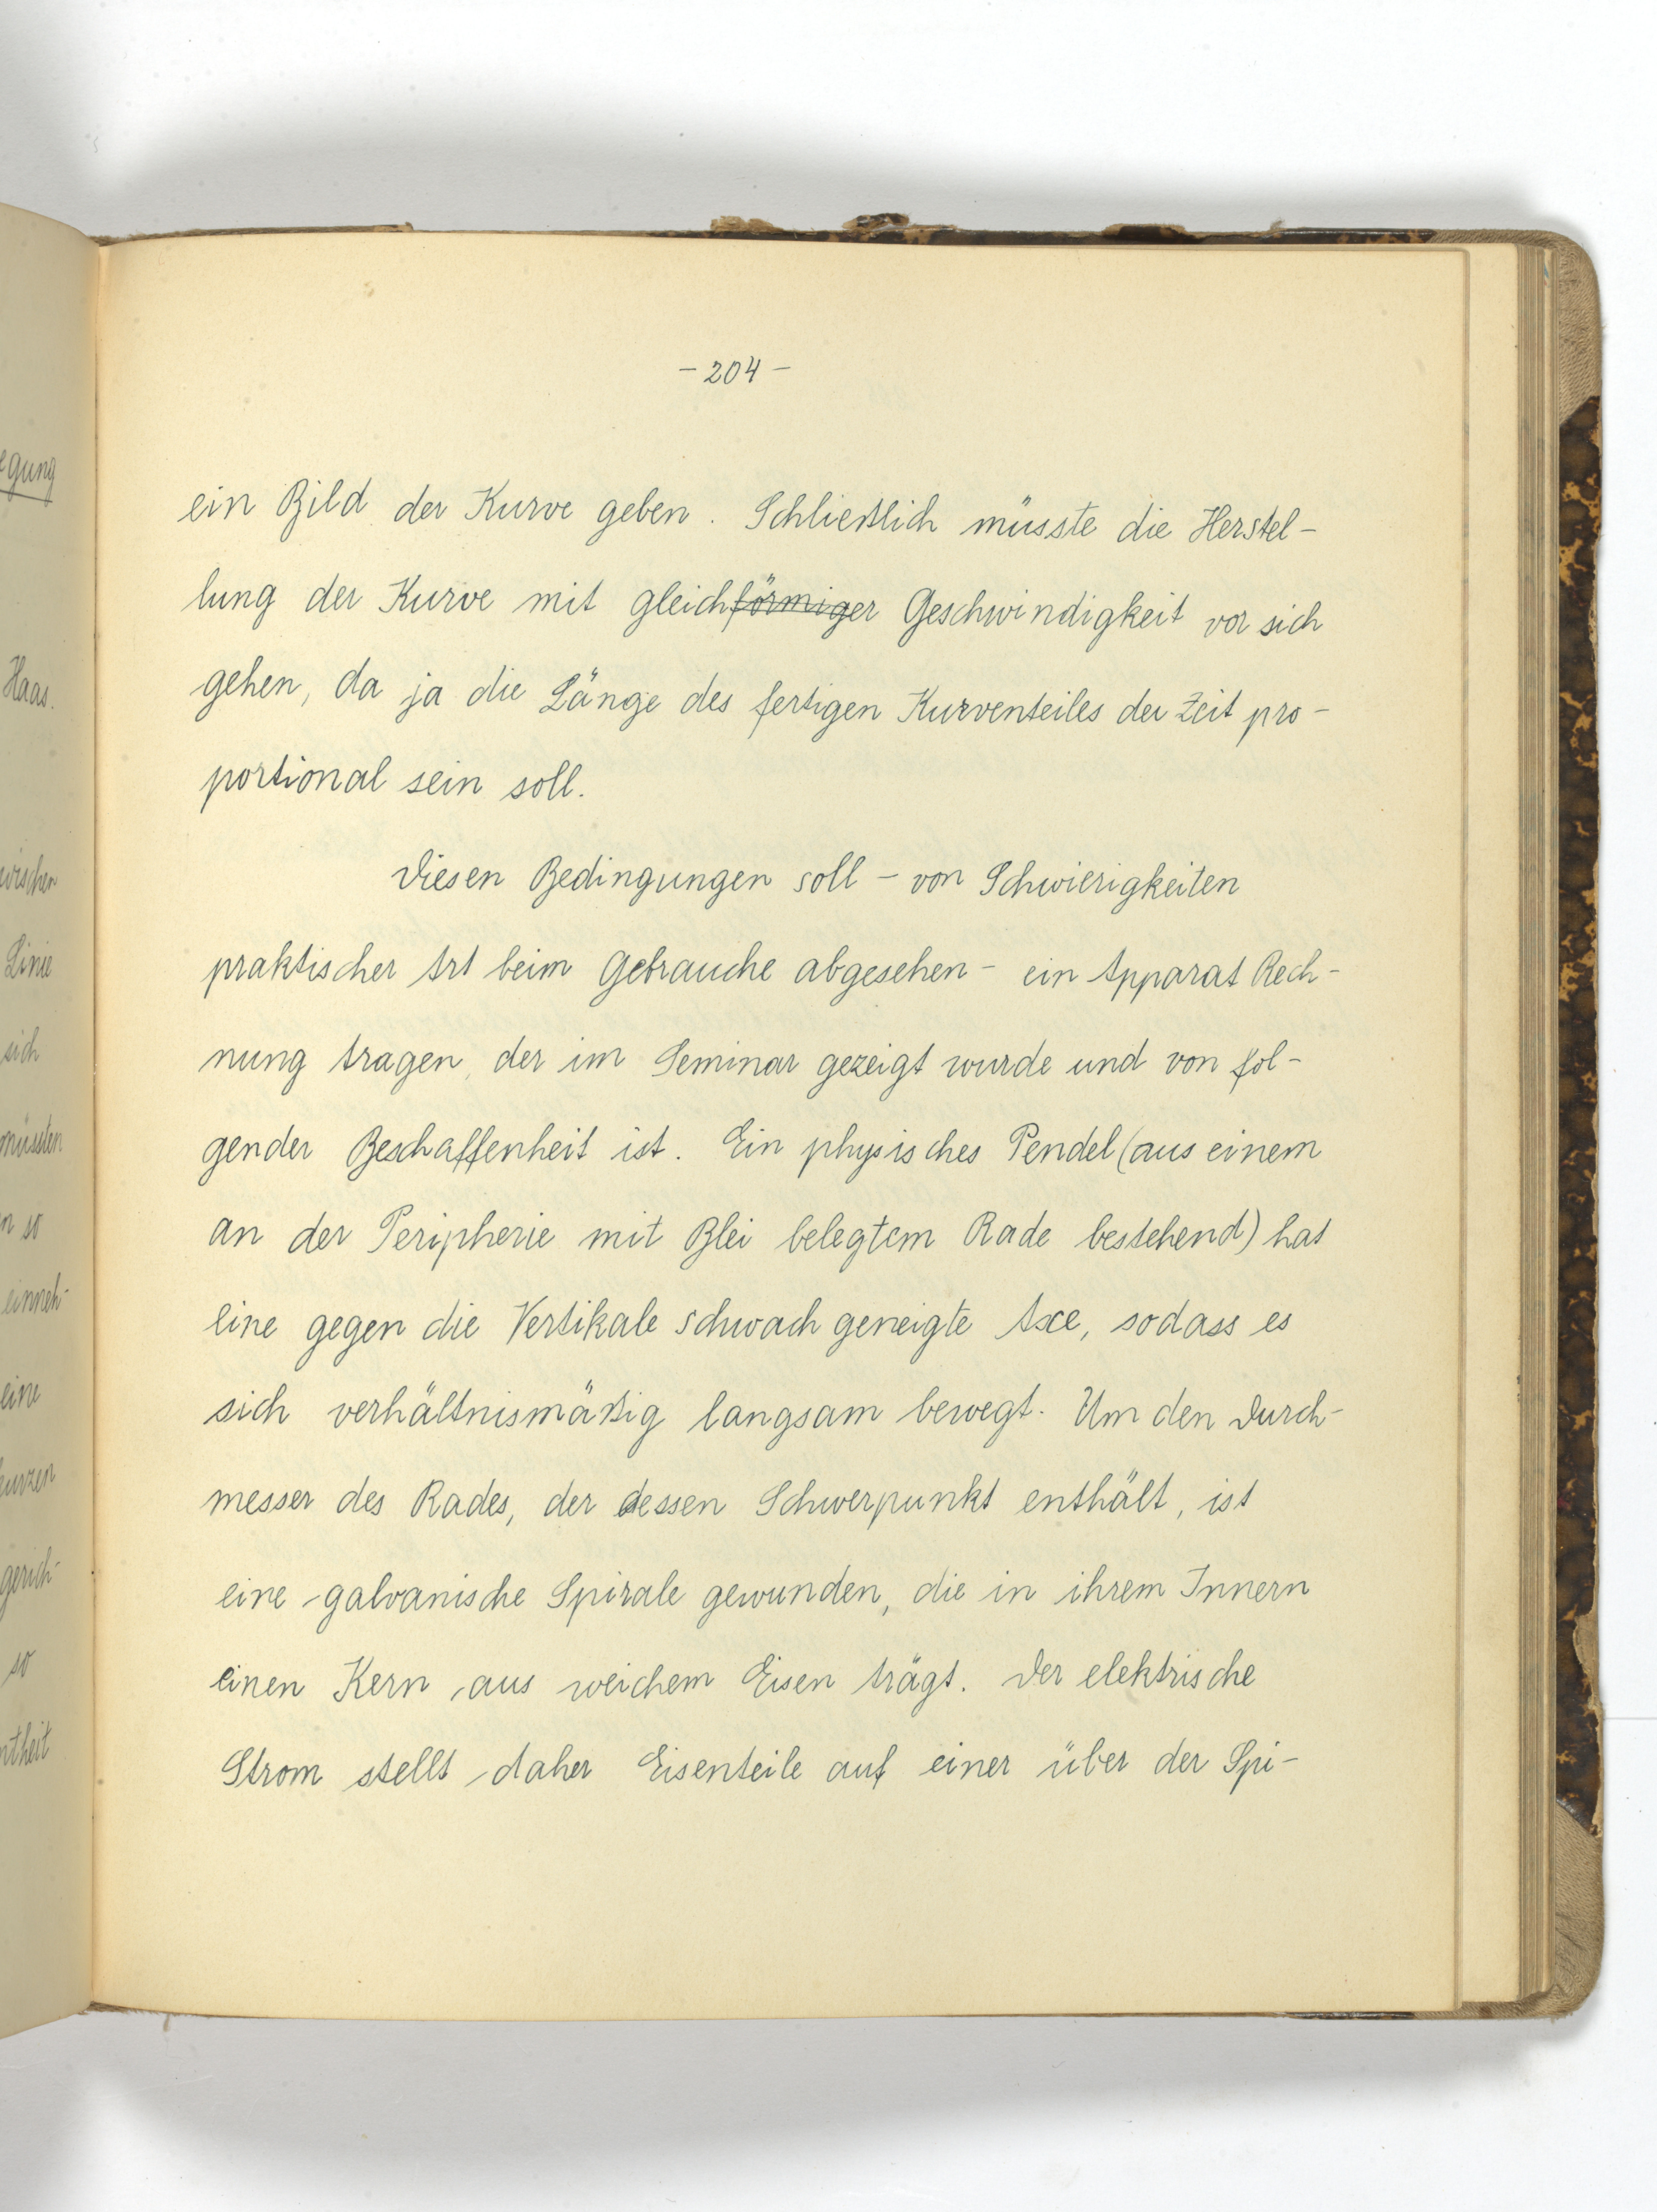 - 204 -
ein Bild der Kurve geben. Schließlich müsste die Herstel-
lung der Kurve mit gleichförmiger Geschwindigkeit vor sich
gehen, da ja die Länge des fertigen Kurventeiles der Zeit pro-
portional sein soll.
Diesen Bedingungen soll - von Schwierigkeiten
praktischer Art beim Gebrauche abgesehen - ein Apparat Rech-
nung tragen, der im Seminar gezeigt wurde und von fol-
gender Beschaffenheit ist. Ein physisches Pendel (aus einem
an der Peripherie mit Blei belegtem Rade bestehend) hat
eine gegen die Vertikale schwach geneigte Axe, sodass es
sich verhältnismäßig langsam bewegt. Um den Durch-
messer des Rades, der dessen Schwerpunkt enthält, ist
eine galvanische Spirale gewunden, die in ihrem Innern
einen Kern aus weichem Eisen trägt. Der elektrische
Strom stellt daher Eisenteile auf einer über der Spi-
egung
Haas.
wischen
Linie
sich
müssten
n so
einneh-
eine
kurzen
gerich-
so
ntheit